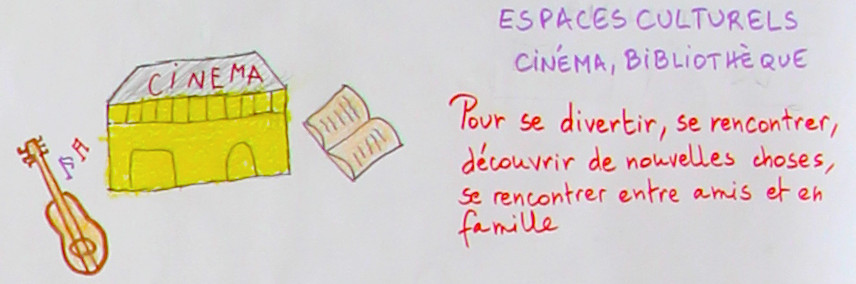 ESPACES CULTURELS
CINÉMA, BIBLIOTHÈQUE
CINEMA
Pour se divertir, se rencontrer,
découvrir de nouvelles choses,
se rencontrer entre amis et en
famille